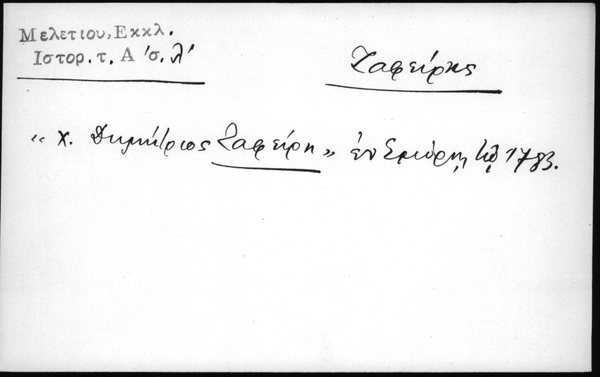 Μελετίου, Εκκλ.
Ιστορ. τ. Α 'σ. λ'
Ζαφείρης
« χ. Δημήτριος Ζαφείρη » ἐν Σμύρνῃ τῷ 1783.